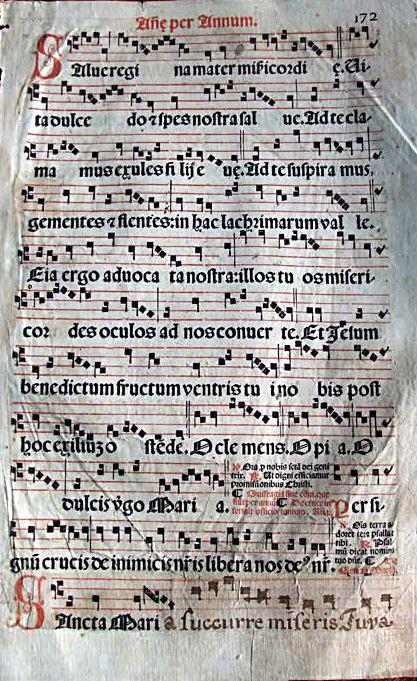 Añe per Annum.
172
SAlue regi na mater mißicordi ę. Ui
ta dulce do ⁊ spes nostra sal ue. Ad te cla-
ma mus exules fi lij e uę. Ad te suspira mus,
gementes ⁊ flentes: in hac lachrimarum val le.
Eia ergo aduoca ta nostra: illos tu os miseri-
cor des oculos ad nos conuer te. Et Jesum
benedictum fructum ventris tu i no bis post
hoc exiliũ õ stẽde. O cle mens. O pi a. O
dulcis v̈go Mari a.
Ora p nobis
Ut digni efficiamur
promissionibus Christi.
Per si-
gnũ crucis de inimicis nr̃is libera nos de⁹ nr̃.
Ois terra a-
doret te ⁊ psallat
tibi.
SAncta Mari a succurre miseris Juva